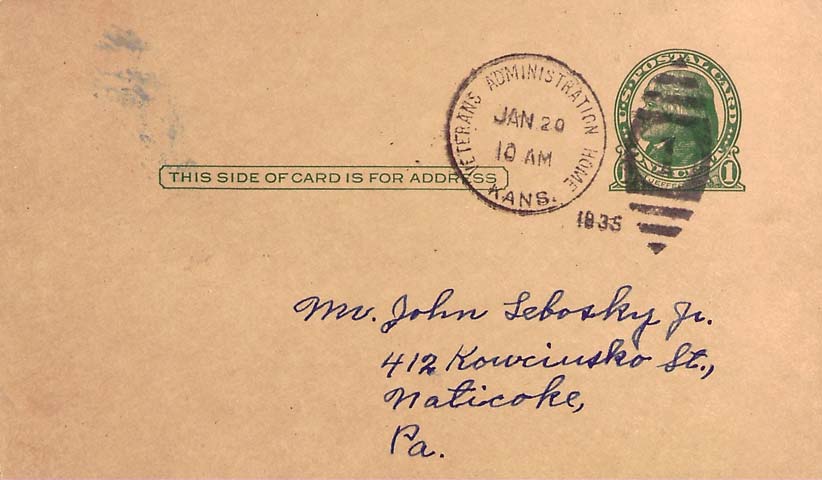 VETERANS ADMINISTRATION HOME
KANS.
JAN 20
10 AM
1935
U.S. POSTAL CARD
1 1
THIS SIDE OF CARD IS FOR ADDRESS
Mr. John Lebosky Jr.
412 Kowciusko St.,
Naticoke,
Pa.